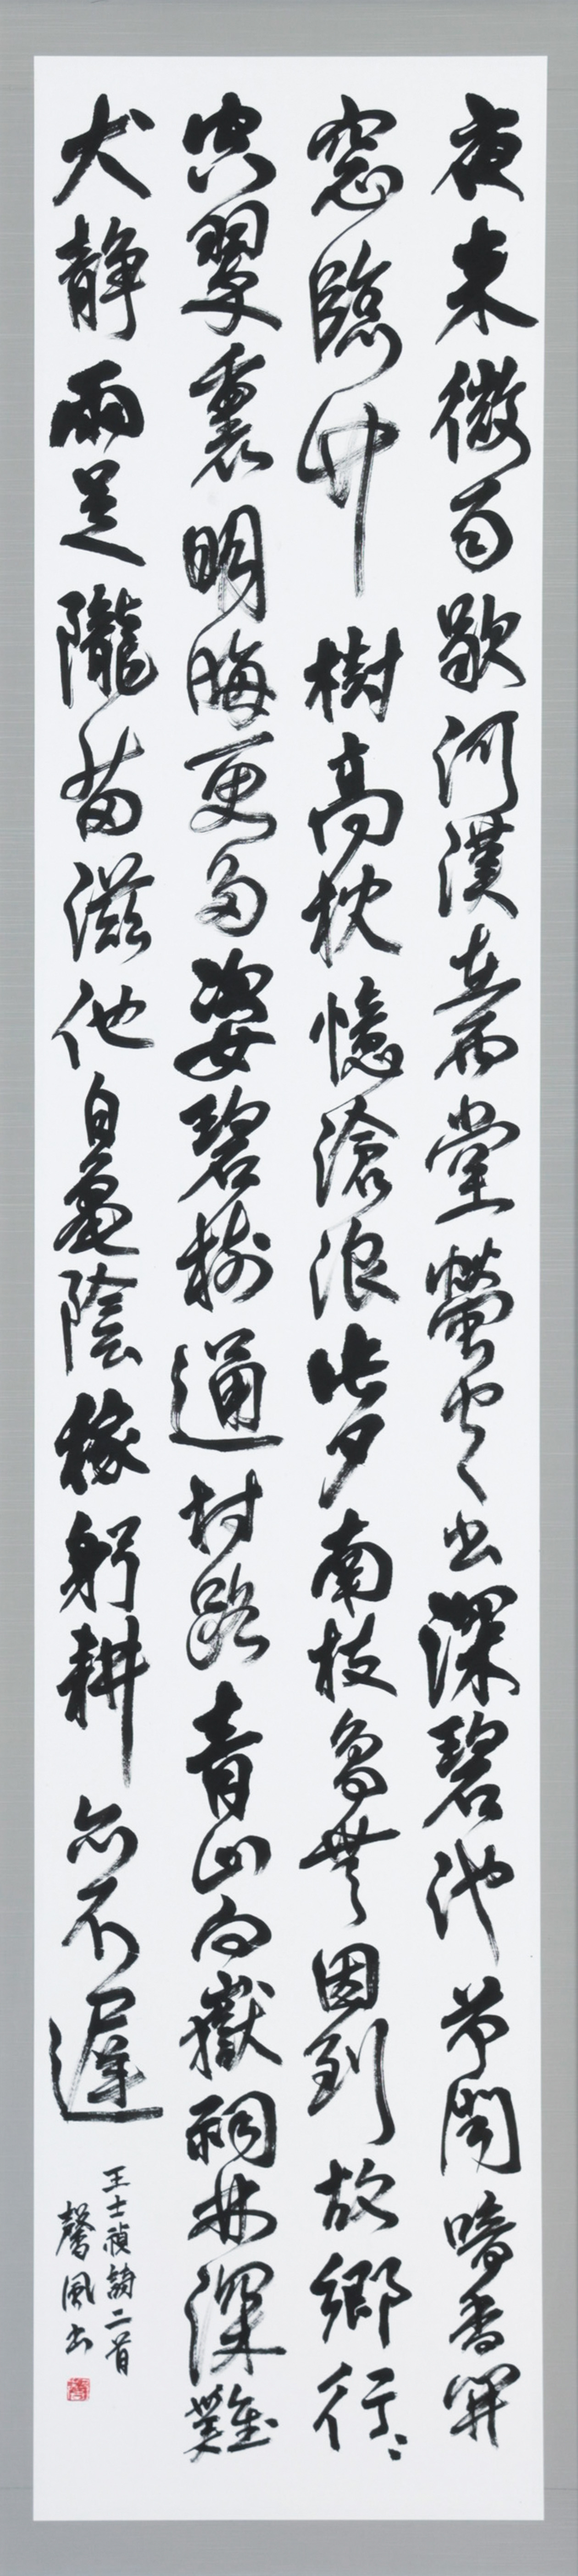 夜来微雨歇河漢在西堂螢火出深碧池荷聞暗香開
窓臨竹樹高枕憶滄浪此夕南枝鳥無因到故鄉行々
空翠裏明晦更多姿碧樹通村路青山向嶽祠林深難
犬静雨足隴苗滋他日龜陰稼躬耕亦不遲
王士禎詩二首
馨風書